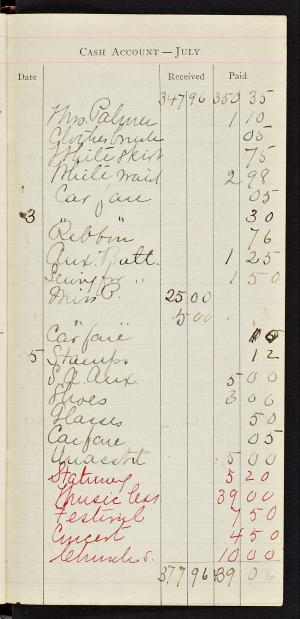 CASH ACCOUNT — JULY
Date Received Paid
347 96 350 35
Mrs. Palmer 1 10
Clothes brush 05
White skirt 75
White waist 2 98
Car fare 05
3 " " 30
Ribbon 76
Aux. 1 25
1 50
Miss P. 25 00
5 00
Car fare
5 Stamps 12
S. A. Aux. 5 00
Shoes 3 00
Glasses 50
Carfare 05
5 00
5 20
Music less 39 00
Festival 7 50
Concert 4 50
10 00
377 96 06